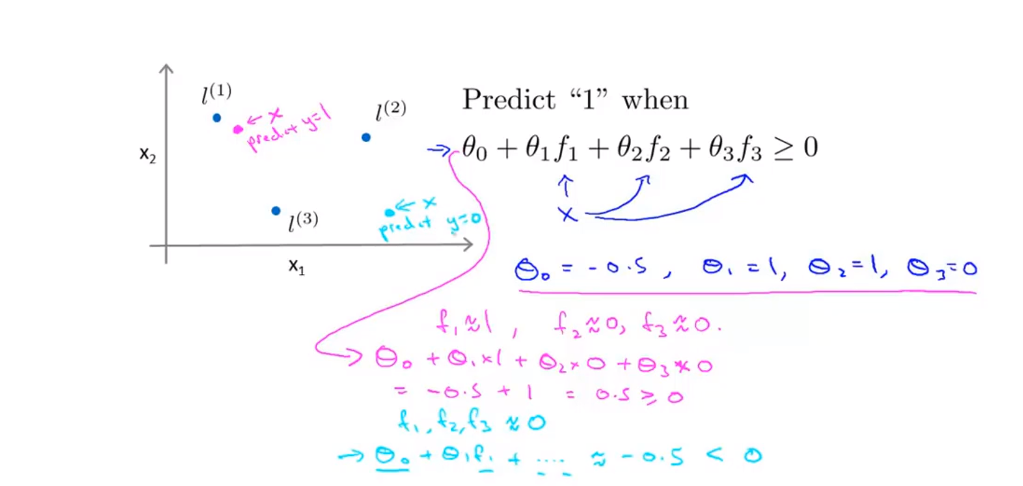 l⁽¹⁾
← x
predict y=1
l⁽²⁾
x₂
l⁽³⁾
← x
predict y=0
x₁
Predict “1” when
→ θ₀ + θ₁f₁ + θ₂f₂ + θ₃f₃ ≥ 0
x
θ₀ = -0.5, θ₁ = 1, θ₂ = 1, θ₃ = 0
f₁ ≈ 1, f₂ ≈ 0, f₃ ≈ 0.
θ₀ + θ₁×1 + θ₂×0 + θ₃×0
= -0.5 + 1 = 0.5 ≥ 0
f₁, f₂, f₃ ≈ 0
→ θ₀ + θ₁f₁ + .... ≈ -0.5 < 0